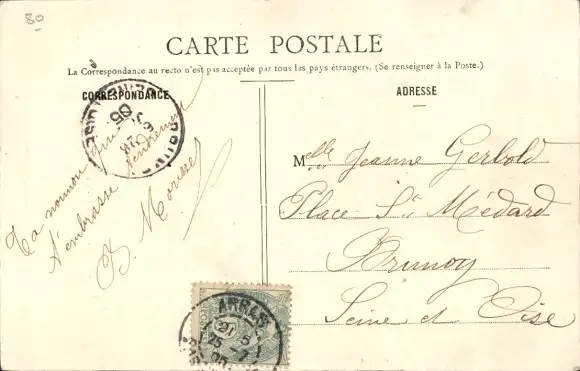 80
CARTE POSTALE
La Correspondance au recto n'est pas acceptée par tous les pays étrangers. (Se renseigner à la Poste.)
CORRESPONDANCE
ADRESSE
Ta nounou qui
t'embrasse tendrement
B. Morisse
Melle Jeanne Gerbold
Place St Médard
Brunoy
Seine et Oise
ARRAS
21 5
25 -7
05